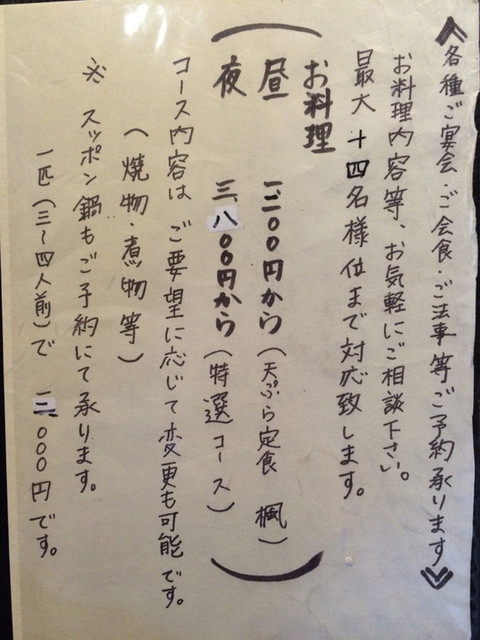 ≪各種ご宴会・ご会食・ご法事等ご予約承ります≫
お料理内容等、お気軽にご相談下さい。
最大十四名様位まで対応致します。
お料理
昼 一二〇〇円から（天ぷら定食 楓）
夜 三、八〇〇円から（特選コース）
コース内容はご要望に応じて変更も可能です。
（焼物・煮物等）
※スッポン鍋もご予約にて承ります。
一匹（三〜四人前）で 一二〇〇〇円です。